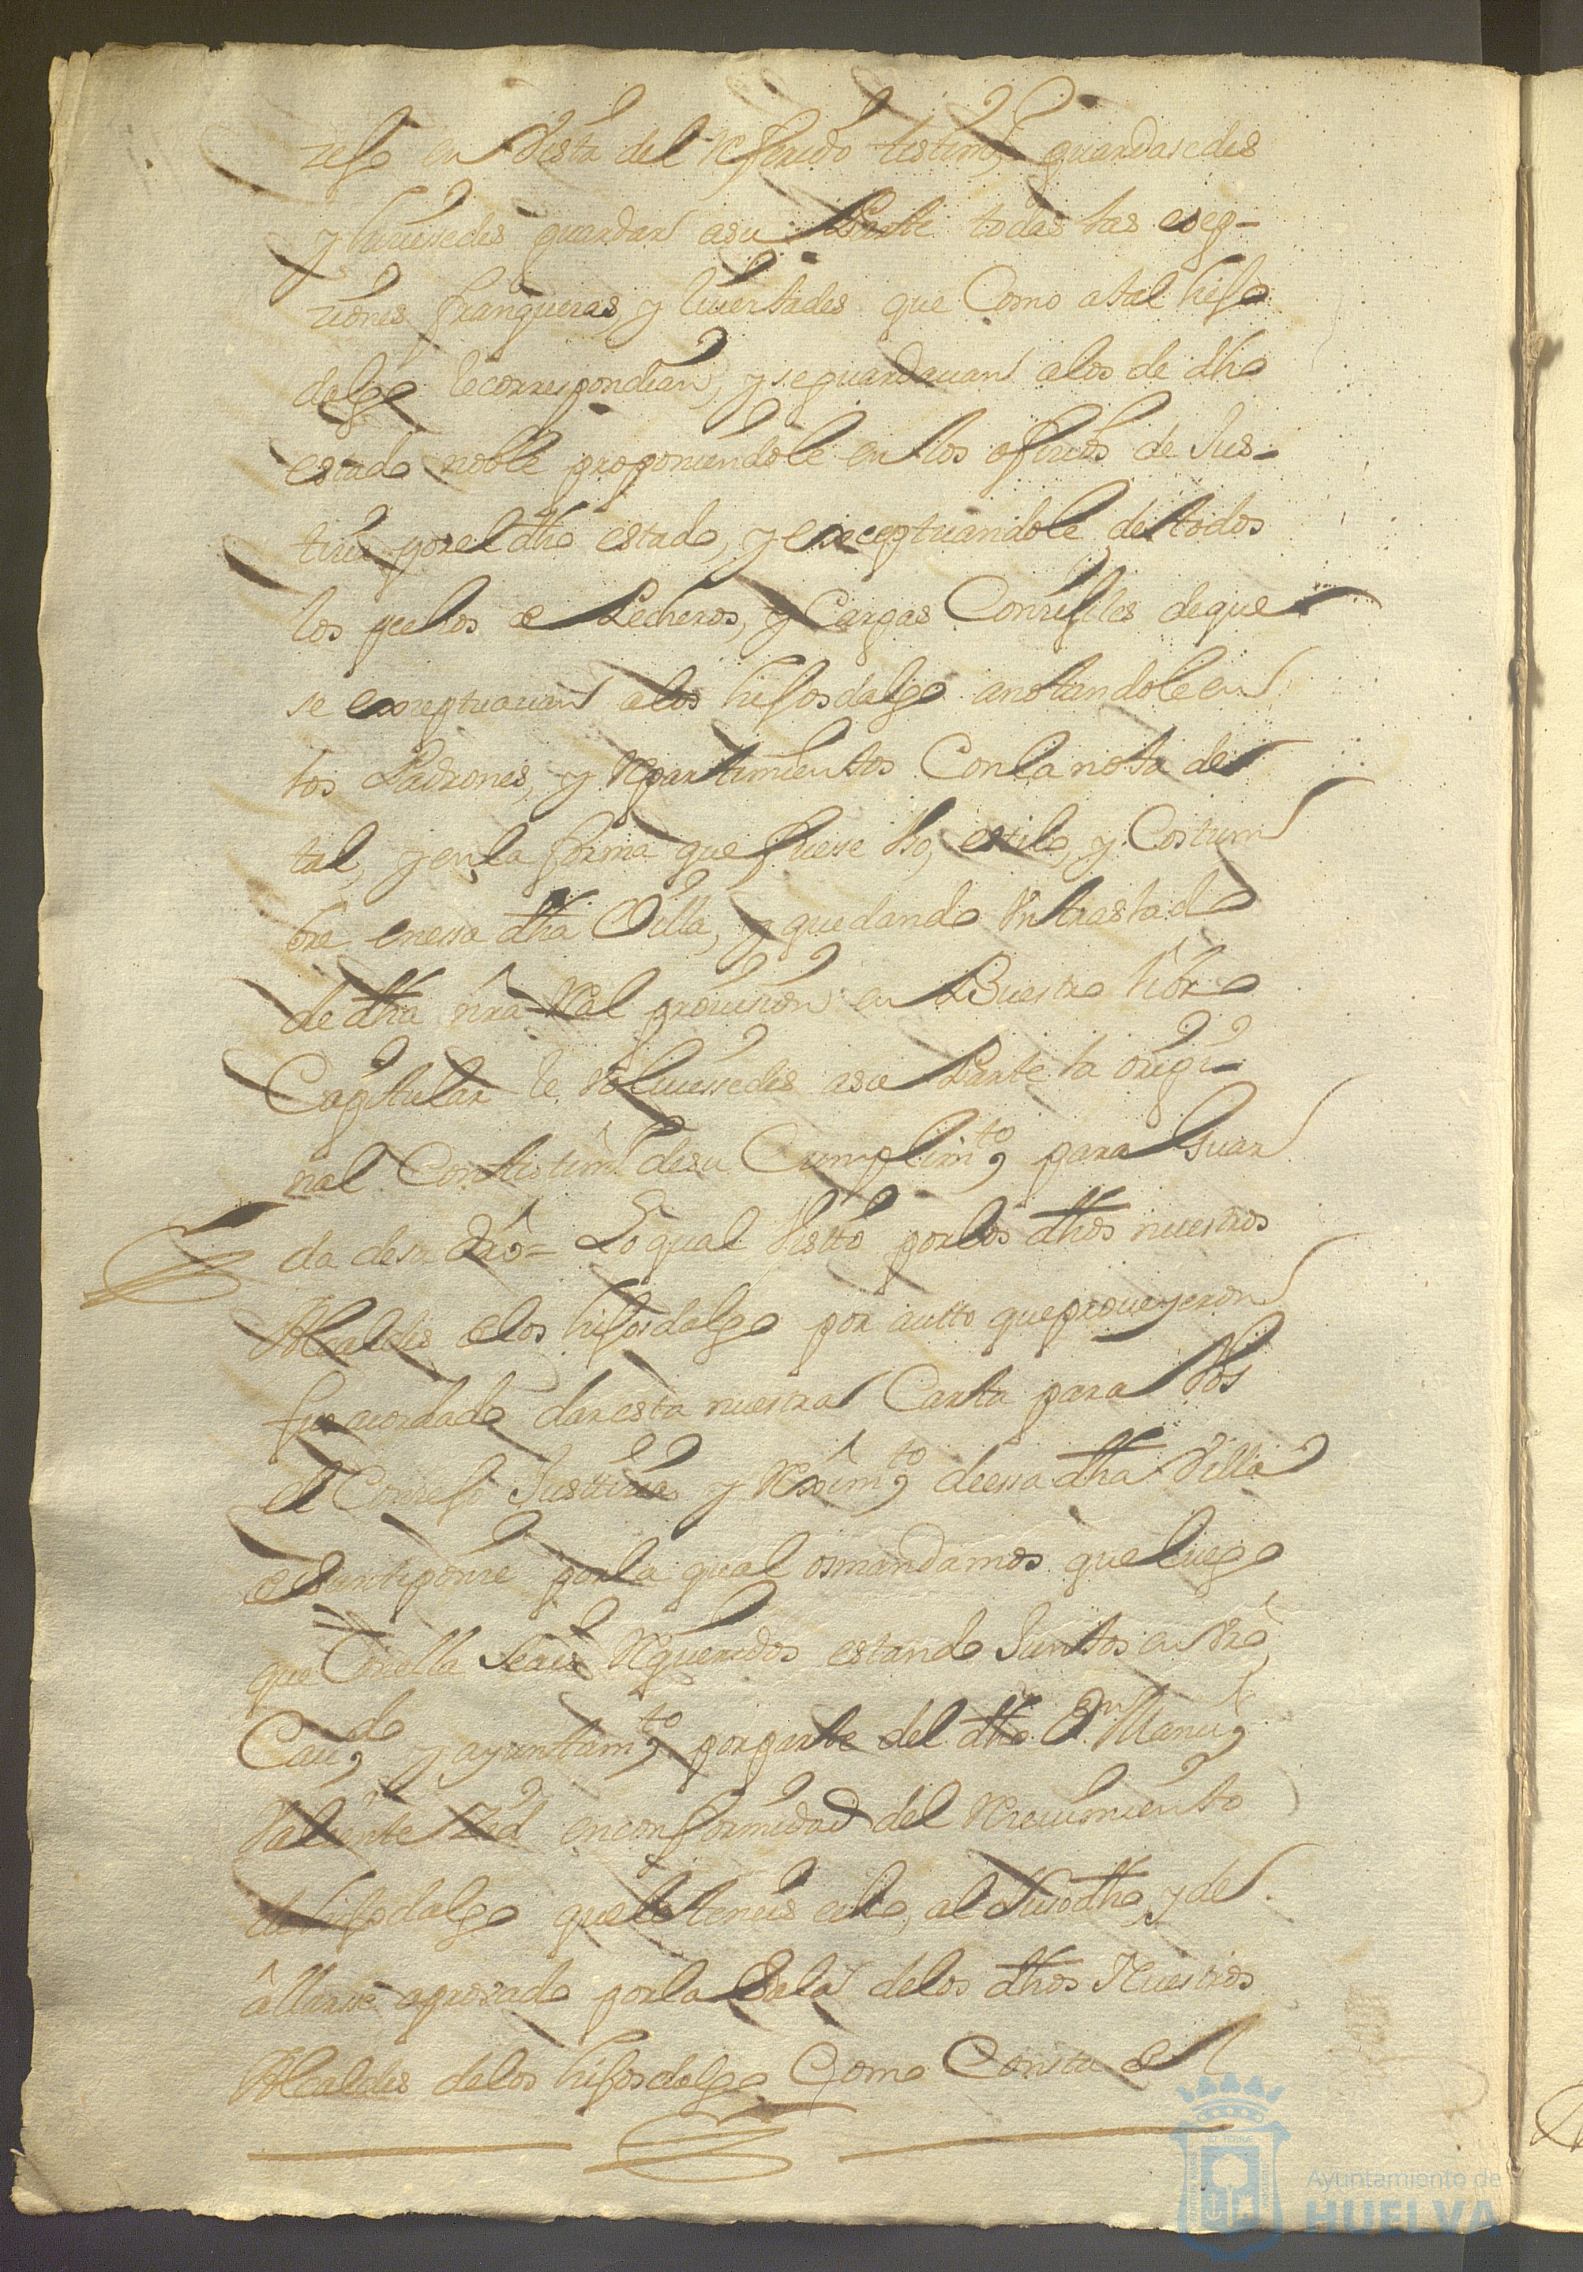 zejo en Vista del Referido testimº, guardasedes
y hiciesedes guardar asu Parte todas las esep-
ziones franquezas, y livertades que Como atal hijo
dalgo lecorrespondian, y seguardauan alos de dho
estado noble proponiendole en los ofizios de Jus-
tizia porel dho estado, y exsceptuandole de todos
los pechos de Pecheros, y Cargas Conzejiles deque
se exceptuauan alos hijosdalgo anotandole en
los Padrones, y Repartimientos Conla nota de
tal, y enla forma que fuese Vso, estilo, y Costum
bre enesa dha Villa, y quedando Vn traslado
de dha nra Real prouision en Vuestro libro
Capitular le Voluiessedes asu Parte la origi-
nal Con testimº desu Cumplimto para Guar
da desu dro = Lo qual Visto por los dhos nuestros
Alcaldes delos hijosdalgo por autto queproueyeron
fue acordado dar esta nuestra Carta para Vos
el Conzejo Justizia y Reximto deesa dha Villa
por la qual osmandamos que luego
que Conella seais Requeridos estando Juntos en Vro
Cauido y ayuntamto por parte del dho Dn Manul
Valiente enconformidad del Reciuimiento
de hijodalgo que le teneis echo, al Susodho, y de
allarse aprouado por la Sala delos dhos Nuestros
Alcaldes delos hijosdalgo Como Consta de
Ayuntamiento de
HUELVA